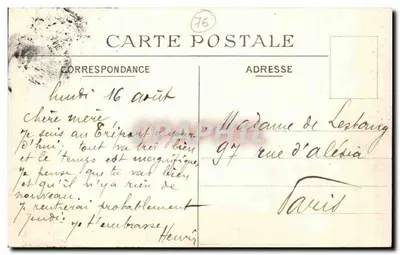 76
CARTE POSTALE
CORRESPONDANCE
ADRESSE
lundi 16 août
chère mère
je suis au Tréport aujour
d'hui, tout va très bien
et le temps est magnifique
je pense que tu vas bien
et qu'il n'y a rien de
nouveau.
je rentrerai probablement
jeudi je t'embrasse
Henri
Madame de Lestang
97 rue d'alésia
Paris